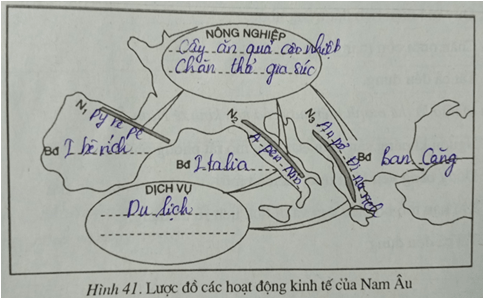 NÔNG NGHIỆP
Cây ăn quả cận nhiệt
Chăn thả gia súc
N₁ Py rê nê
N₂ A-pen-nin
N₃ An-pơ Đi-na-rich
Bđ I bê rich
Bđ Italia
Bđ Ban Căng
DỊCH VỤ
Du lịch
Hình 41. Lược đồ các hoạt động kinh tế của Nam Âu